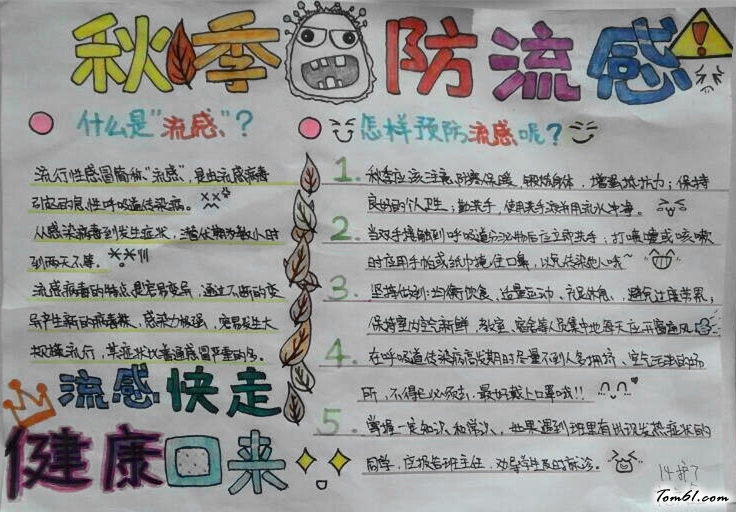 秋季防流感
什么是"流感"?
流行性感冒简称"流感"，是由流感病毒
引起的急性呼吸道传染病。
从感染病毒到发生症状，潜伏期为数小时
到两天不等。
流感病毒的特点是容易变异，通过不断的变
异产生新的病毒株，感染力极强，容易发生大
规模流行，其症状比普通感冒严重的多。
流感快走
健康回来
怎样预防流感呢?
1. 秋季应该注意防寒保暖，锻炼身体，增强抵抗力；保持
良好的个人卫生；勤洗手，使用洗手液并用流水冲净。
2. 当双手接触到呼吸道分泌物后应立即洗手；打喷嚏或咳嗽
时应用手帕或纸巾掩住口鼻，以免传染他人哦~
3. 坚持做到：均衡饮食、适量运动、充足休息，避免过度劳累；
保持室内空气新鲜，教室、宿舍等人员集中地每天应开窗通风
4. 在呼吸道传染病高发期时尽量不到人多拥挤、空气污浊的场
所，不得已必须去，最好戴上口罩哦!!
5. 掌握一定知识和常识，如果遇到班里有出现发热症状的
同学，应报告班主任，劝导学生及时就诊。
Tom61.com